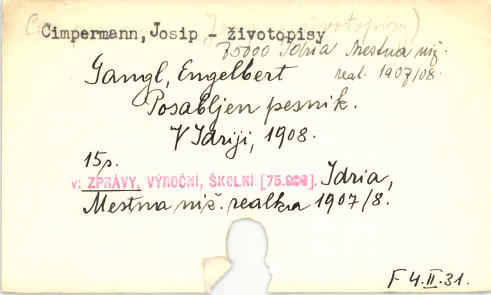 Cimpermann, Josip - životopisy
Idria Mestna niž.
real. 1907/08.
Gangl, Engelbert
Posabljen pesnik.
V Idriji, 1908.
15 p.
v: ZPRÁVY, VÝROČNÍ, ŠKOLNÍ [75.000]. Idria,
Mestna niž. realka 1907/8.
F 4.II.31.